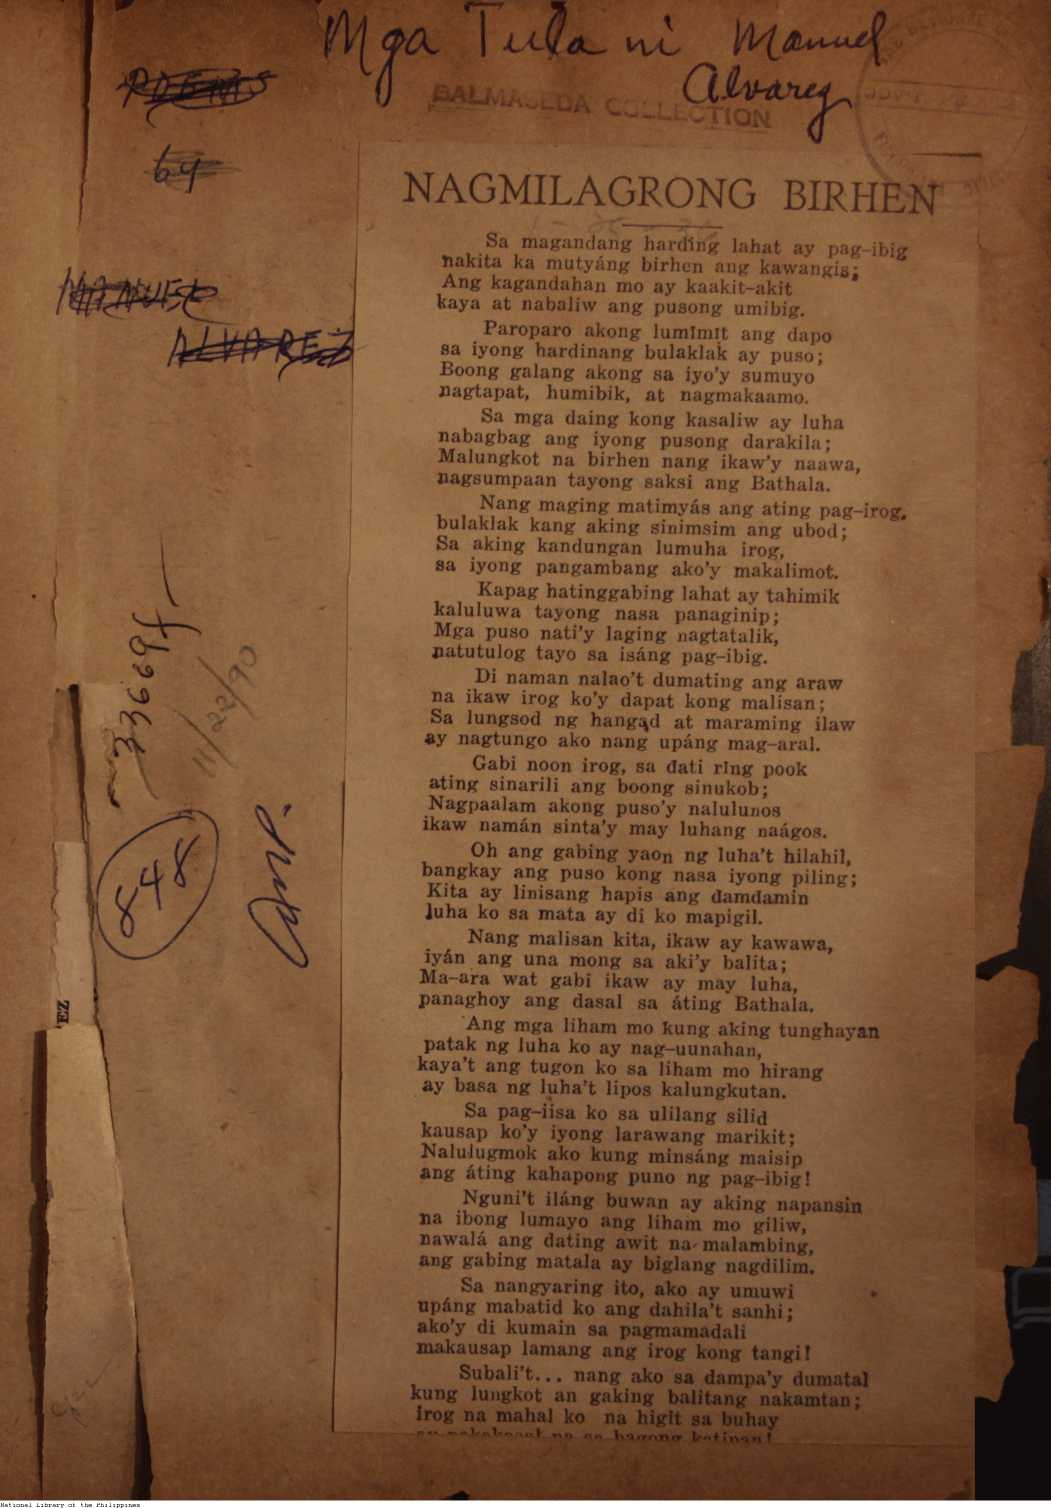 Mga Tula ni Manuel
Alvarez
BALMASEDA COLLECTION
POEMS
by
MANUEL
ALVAREZ
NAGMILAGRONG BIRHEN
Sa magandang harding lahat ay pag-ibig
nakita ka mutyáng birhen ang kawangis;
Ang kagandahan mo ay kaakit-akit
kaya at nabaliw ang pusong umibig.
Paroparo akong lumimit ang dapo
sa iyong hardinang bulaklak ay puso;
Boong galang akong sa iyo'y sumuyo
nagtapat, humibik, at nagmakaamo.
Sa mga daing kong kasaliw ay luha
nabagbag ang iyong pusong darakila;
Malungkot na birhen nang ikaw'y naawa,
nagsumpaan tayong saksi ang Bathala.
Nang maging matimyás ang ating pag-irog.
bulaklak kang aking sinimsim ang ubod;
Sa aking kandungan lumuha irog,
sa iyong pangambang ako'y makalimot.
Kapag hatinggabing lahat ay tahimik
kaluluwa tayong nasa panaginip;
Mga puso nati'y laging nagtatalik,
natutulog tayo sa isáng pag-ibig.
Di naman nalao't dumating ang araw
na ikaw irog ko'y dapat kong malisan;
Sa lungsod ng hangad at maraming ilaw
ay nagtungo ako nang upáng mag-aral.
Gabi noon irog, sa dati ring pook
ating sinarili ang boong sinukob;
Nagpaalam akong puso'y nalulunos
ikaw namán sinta'y may luhang naágos.
Oh ang gabing yaon ng luha't hilahil,
bangkay ang puso kong nasa iyong piling;
Kita ay linisang hapis ang damdamin
luha ko sa mata ay di ko mapigil.
Nang malisan kita, ikaw ay kawawa,
iyán ang una mong sa aki'y balita;
Ma-ara wat gabi ikaw ay may luha,
panaghoy ang dasal sa áting Bathala.
Ang mga liham mo kung aking tunghayan
patak ng luha ko ay nag-uunahan,
kaya't ang tugon ko sa liham mo hirang
ay basa ng luha't lipos kalungkutan.
Sa pag-iisa ko sa ulilang silid
kausap ko'y iyong larawang marikit;
Nalulugmok ako kung minsáng maisip
ang áting kahapong puno ng pag-ibig!
Nguni't iláng buwan ay aking napansin
na ibong lumayo ang liham mo giliw,
nawalá ang dating awit na malambing,
ang gabing matala ay biglang nagdilim.
Sa nangyaring ito, ako ay umuwi
upáng mabatid ko ang dahila't sanhi;
ako'y di kumain sa pagmamadali
makausap lamang ang irog kong tangi!
Subali't... nang ako sa dampa'y dumatal
kung lungkot an gaking balitang nakamtan;
irog na mahal ko na higit sa buhay
33669f
11/22/90
848
EZ
National Library of the Philippines